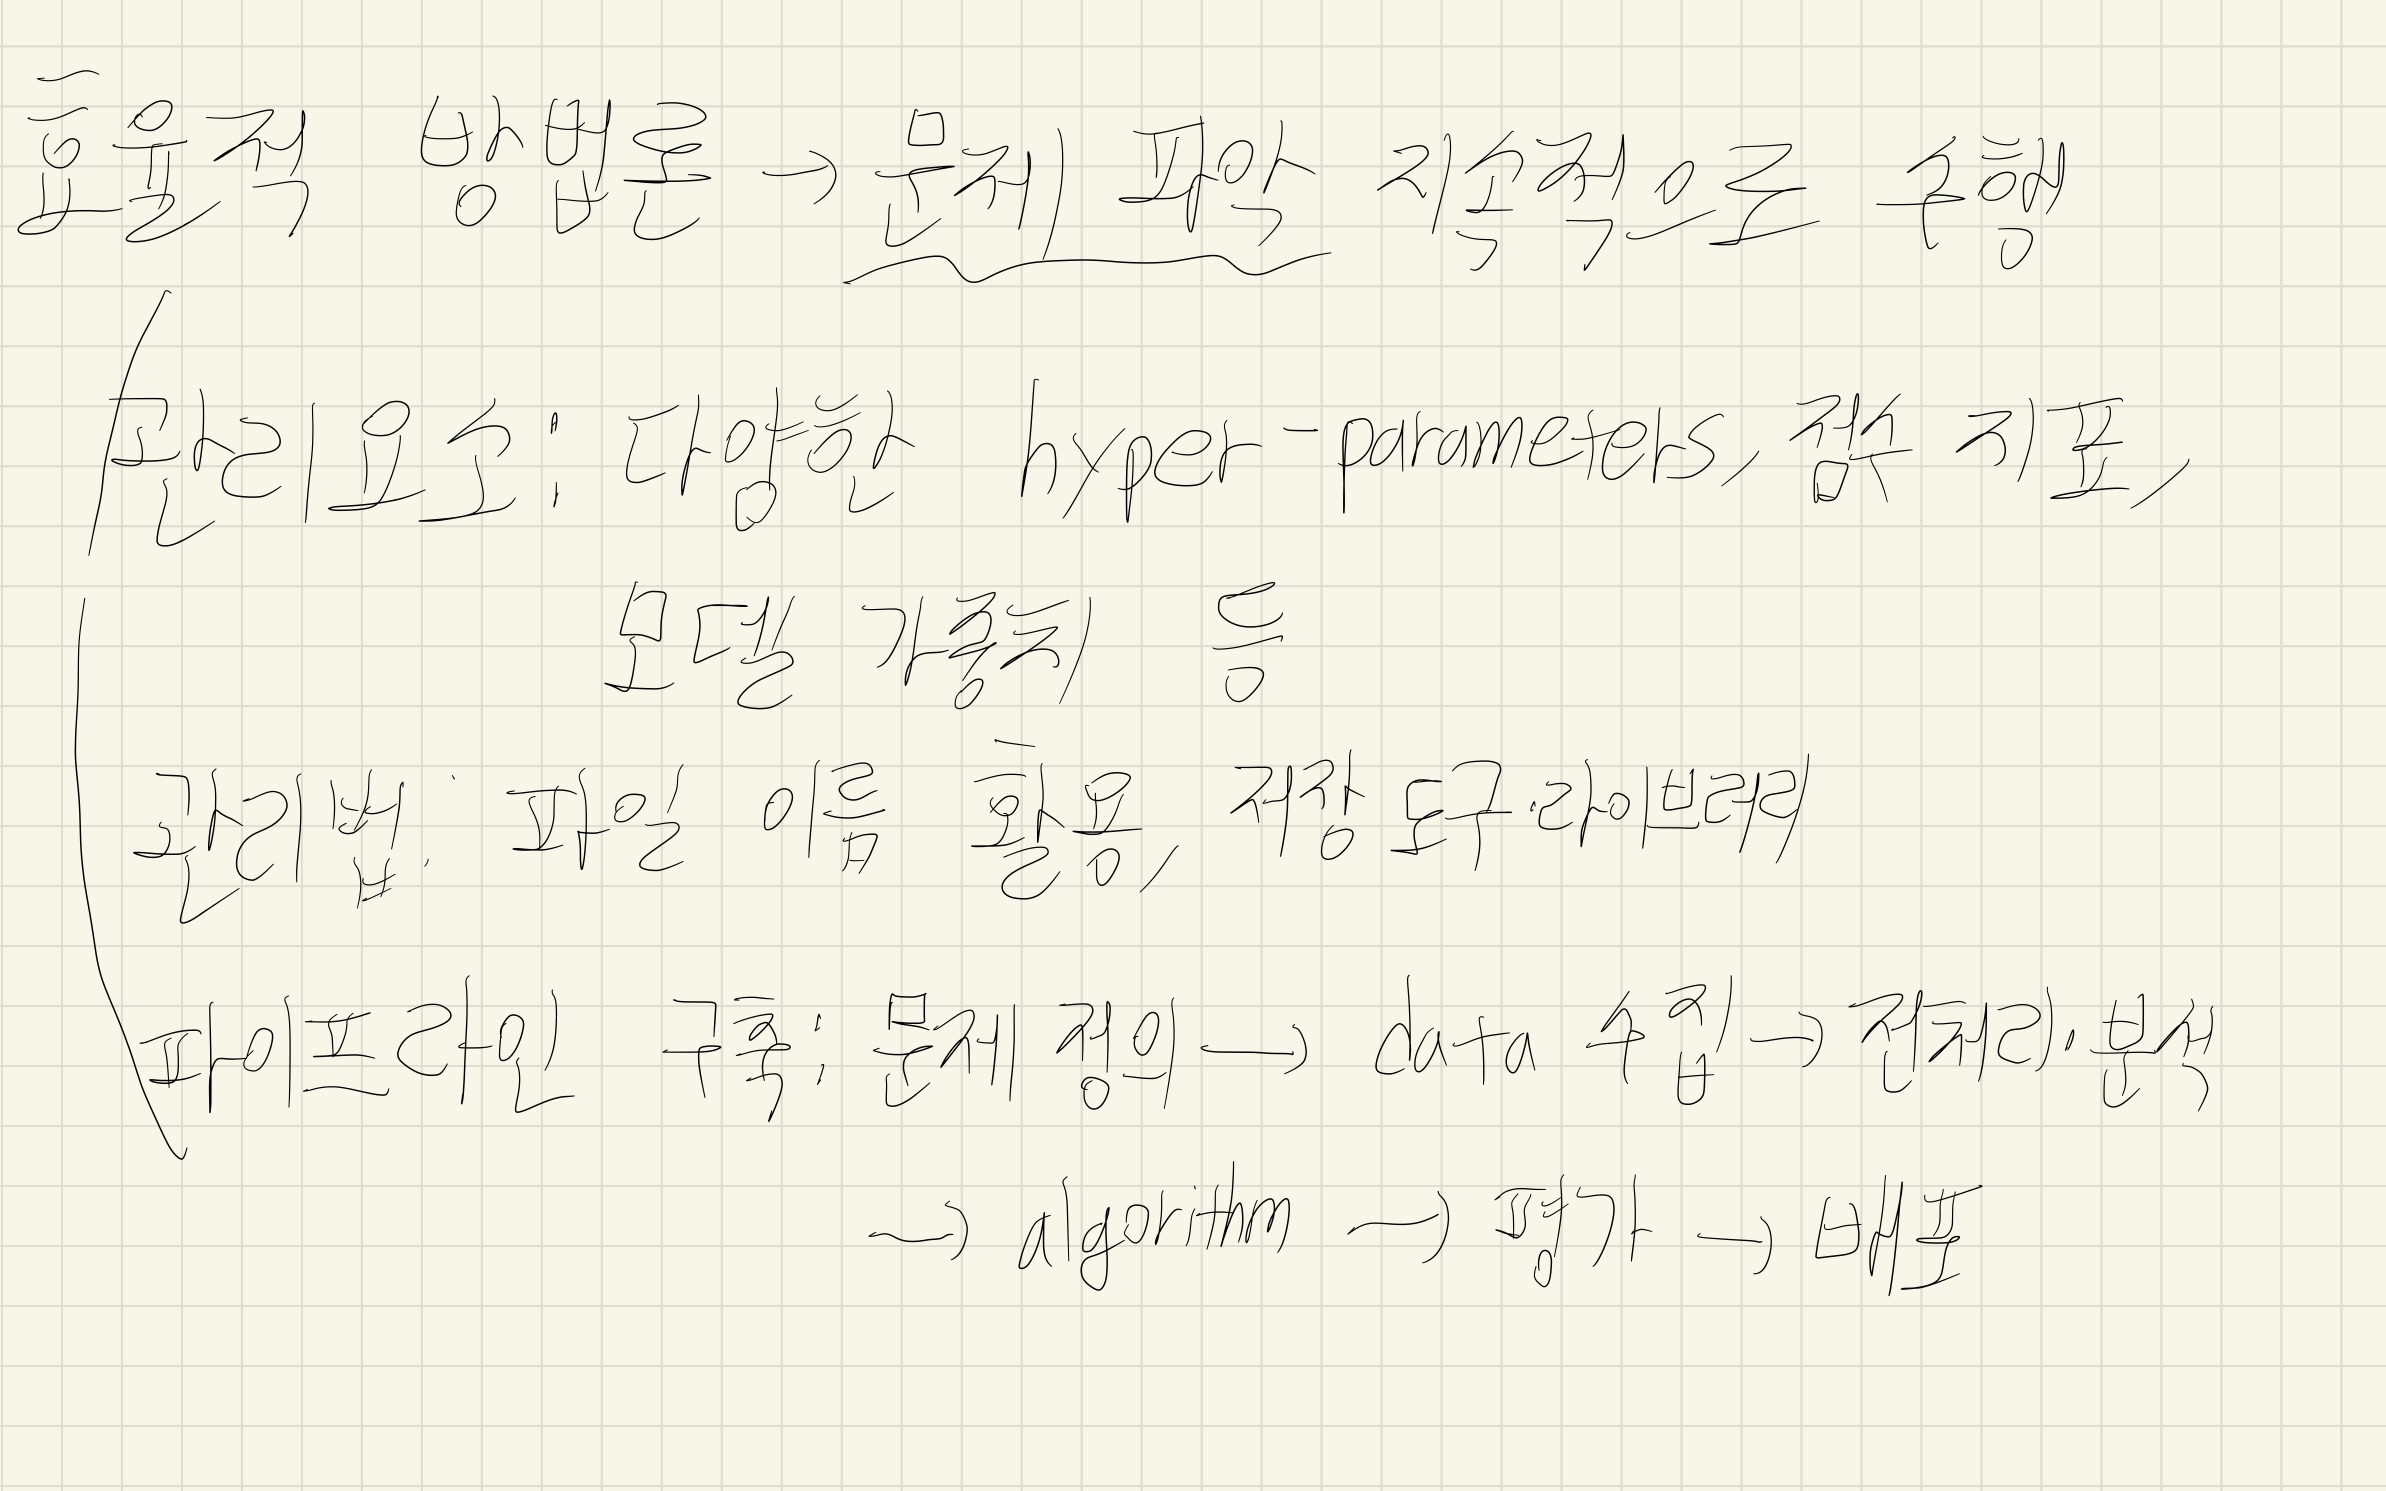 효율적 방법론 → 문제 파악 지속적으로 수행
관리요소: 다양한 hyper-parameters, 점수 지표,
모델 가중치 등
관리법: 파일 이름 활용, 저장 도구·라이브러리
파이프라인 구축: 문제 정의 → data 수집 → 전처리·분석
→ algorithm → 평가 → 배포